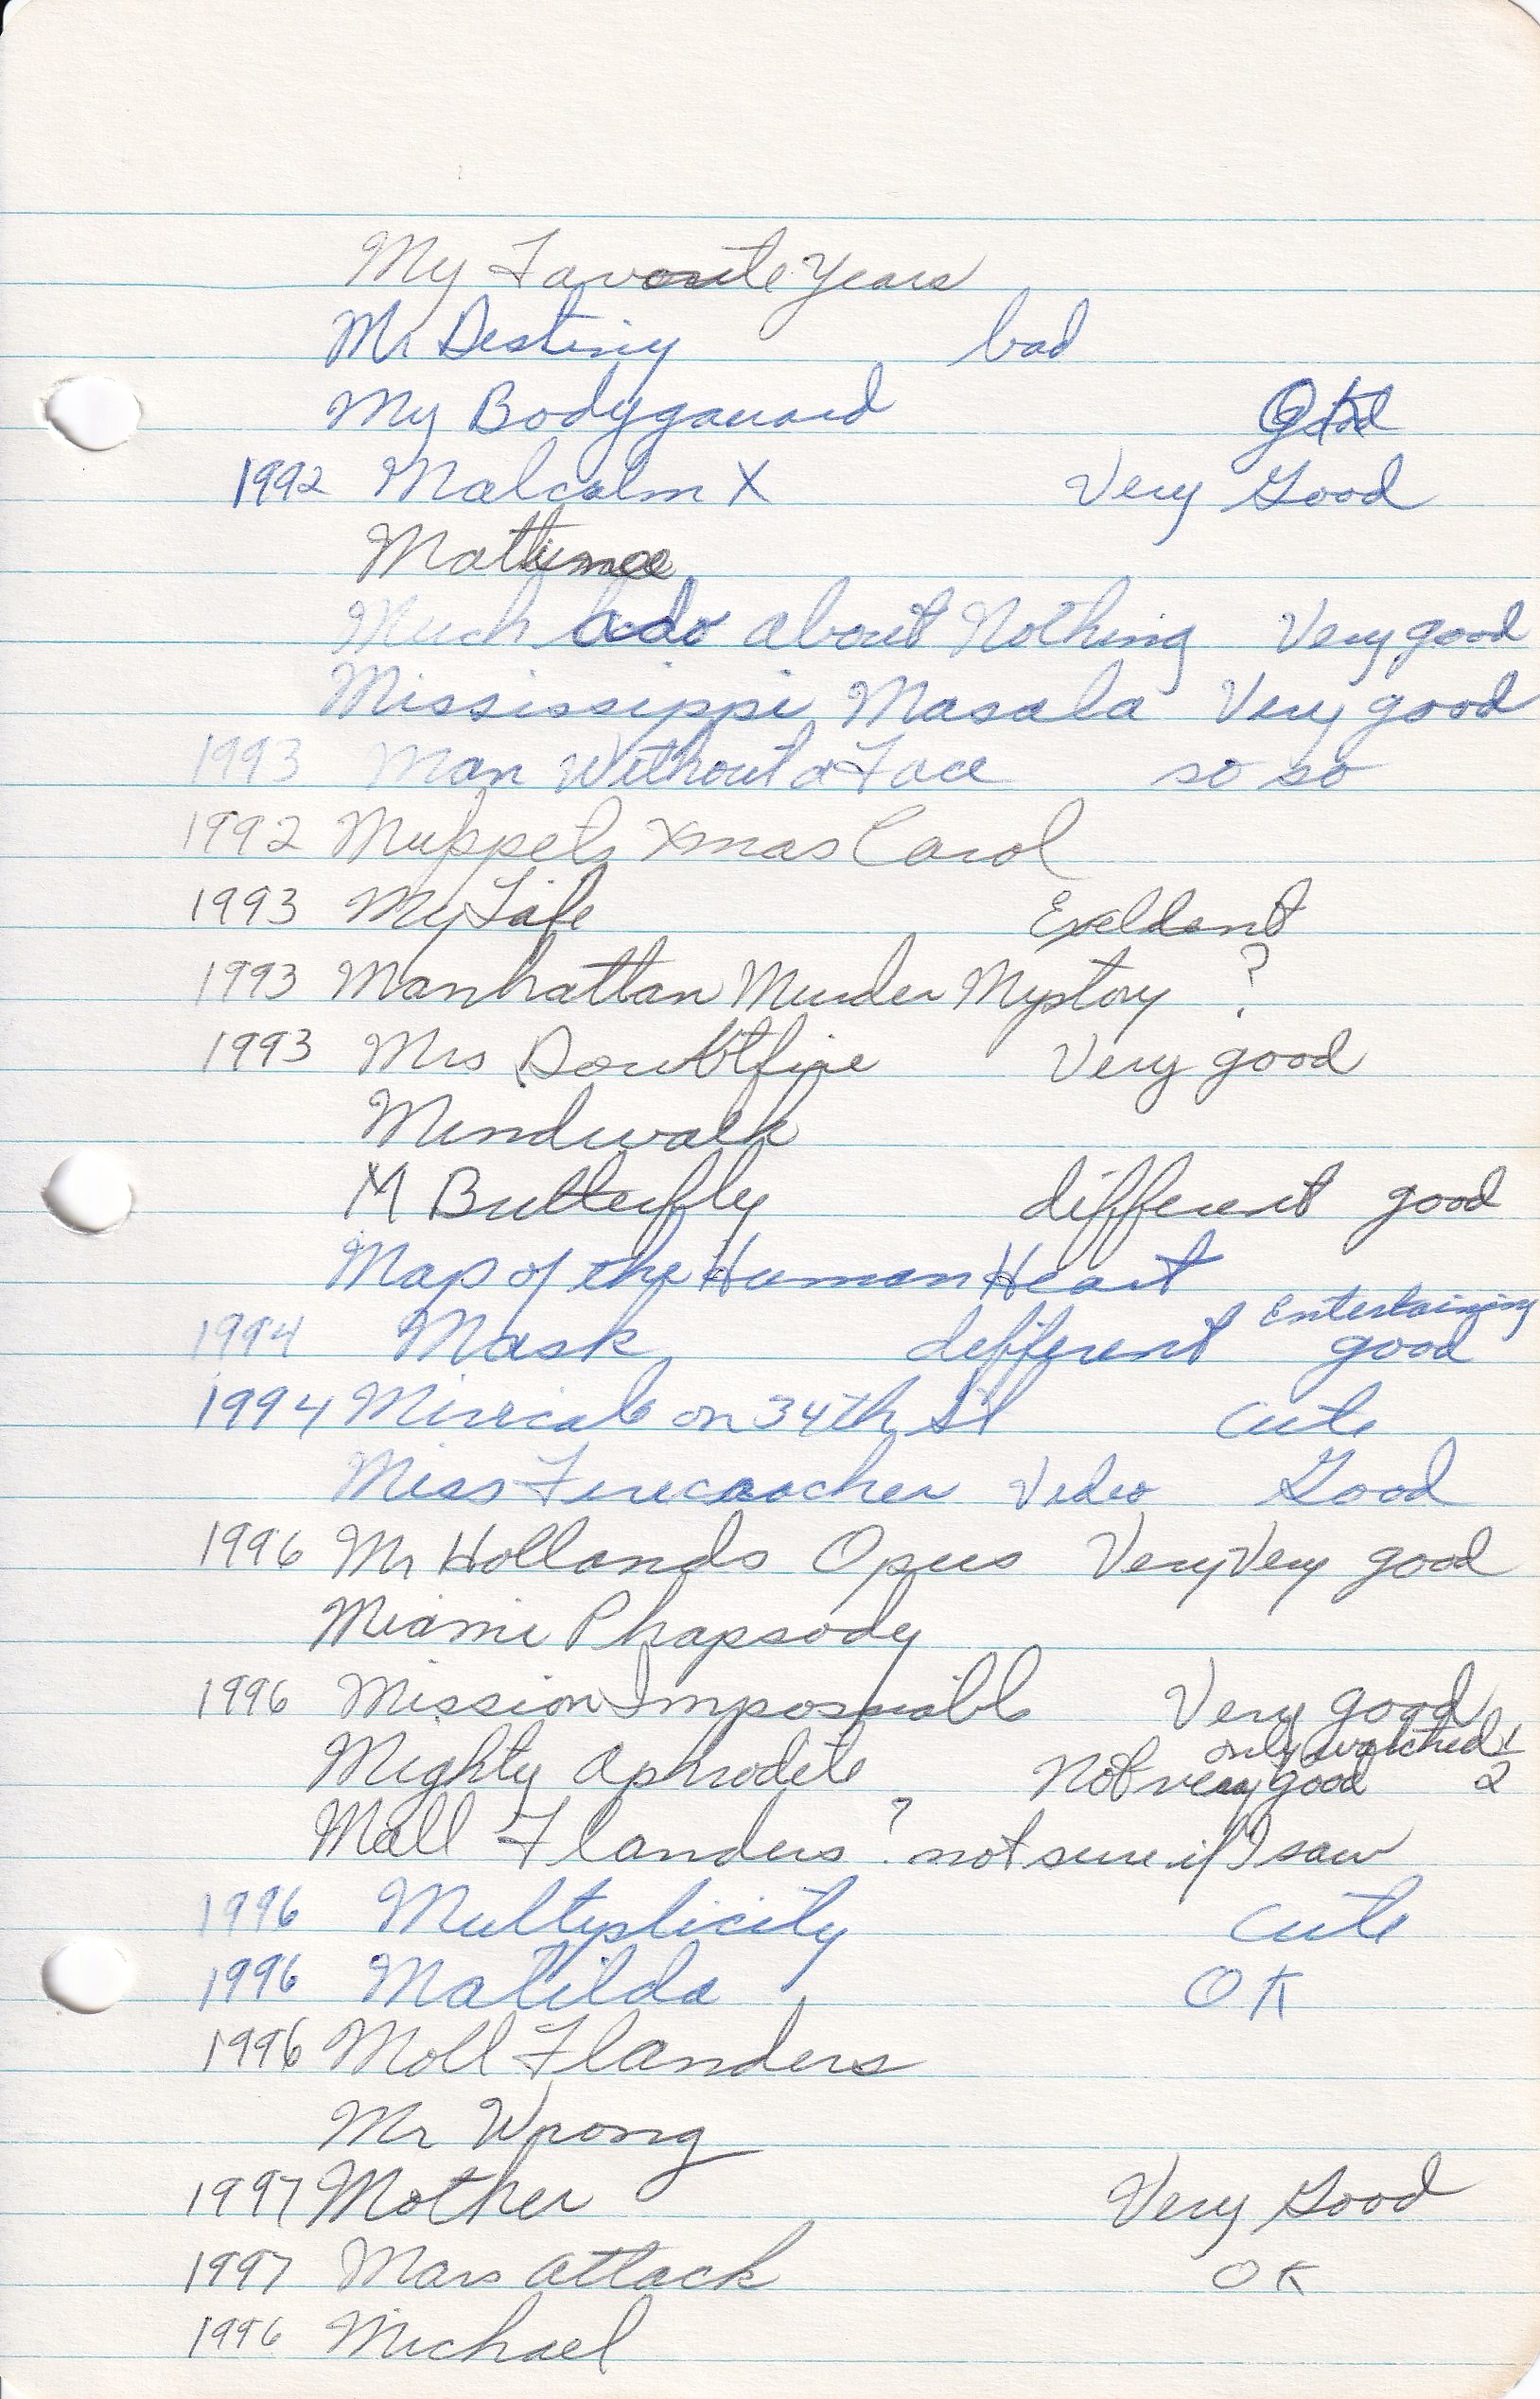 My Favorite Years
Mr Destiny bad
My Bodygauard
1992 Malcolm X Very Good
Mattinee
Much ado about Nothing Very good
Mississippi Masala Very good
1993 Man Without a Face so so
1992 Muppets Xmas Carol
1993 My Life Exeldant
1993 Manhattan Murder Mystory ?
1993 Mrs Doubtfire Very good
Mindwalk
M Butterfly different good
Map of the Human Heart
1994 Mask different Entertaining good
1994 Miricale on 34th St cute
Miss Firecracker Video Good
1996 Mr Hollands Opus Very Very good
Miami Rhapsody
1996 Mission Impossiable Very good
Mighty Aphrodite Not very good only watched 1/2
Moll Flanders ? not sure if I saw
1996 Multyplicity cute
1996 Matilda OK
1996 Moll Flanders
Mr Wrong
1997 Mother Very Good
1997 Mars attack OK
1996 Michael